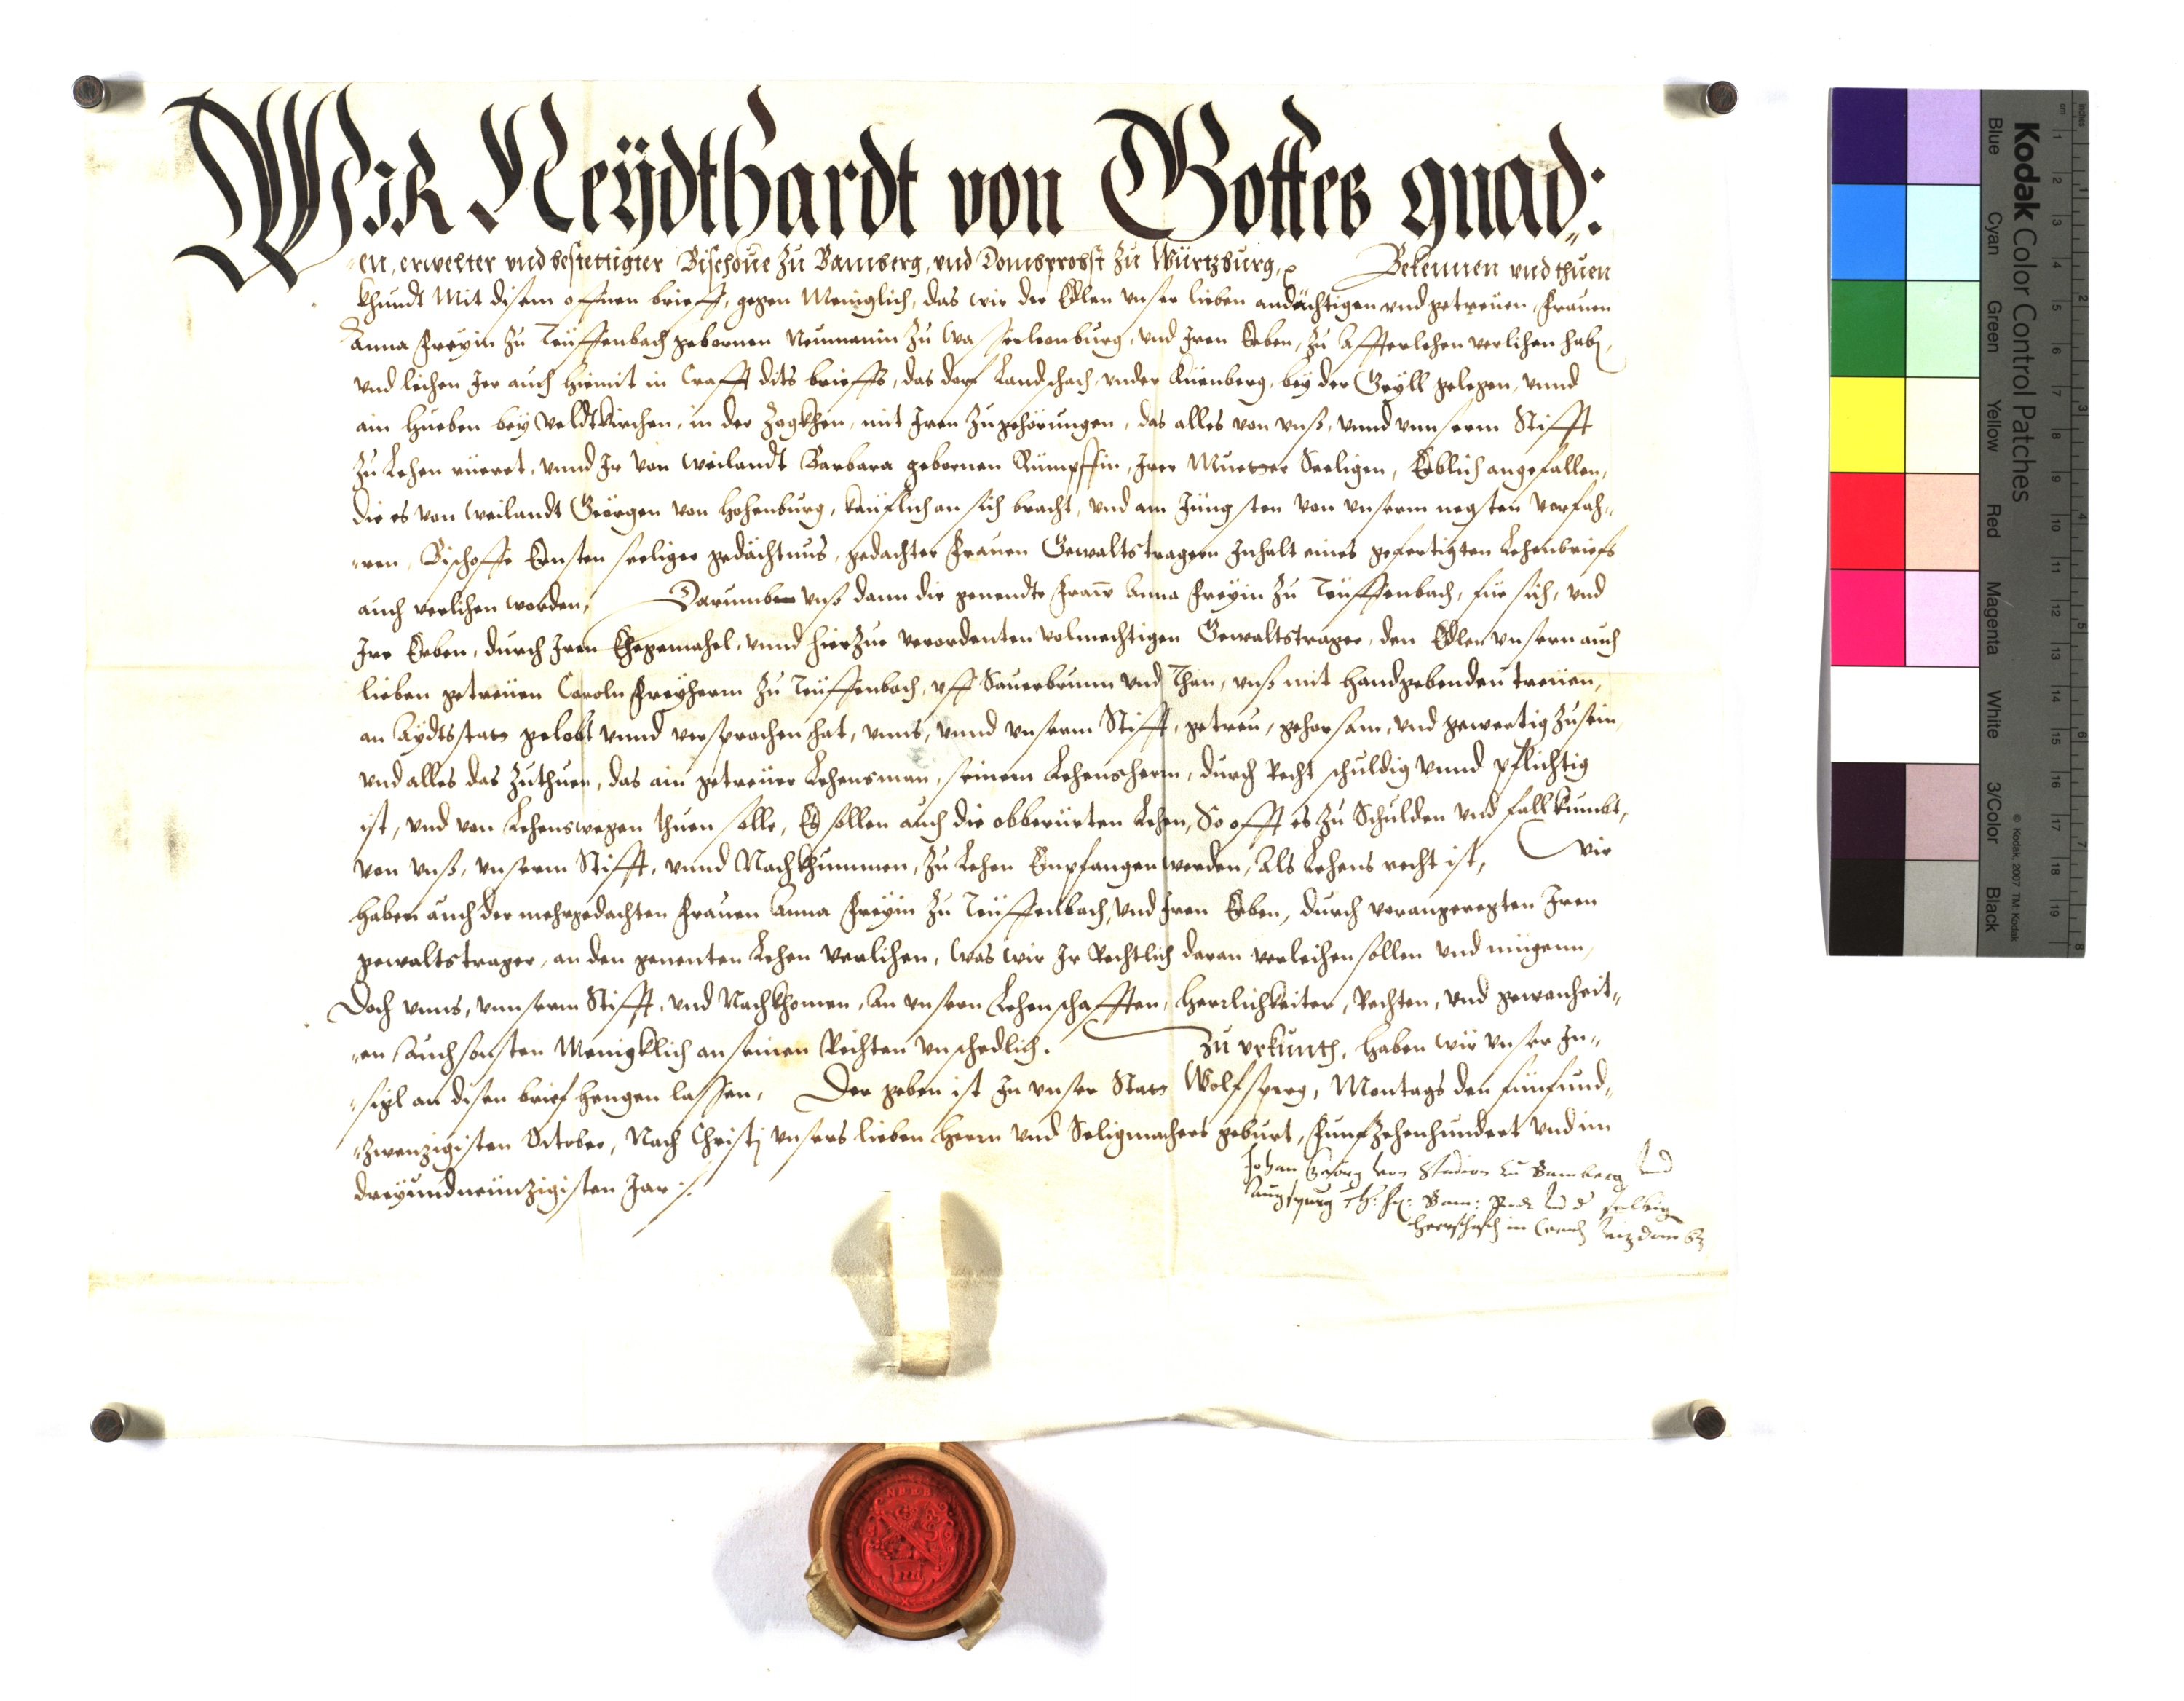 Wir Neÿdthardt von Gottes gnad:
en, erwelter vnd bestettigter Bischoue zu Bamberg, vnd Dombprobst zu Würtzburg, Bekennen vnd thuen
khundt Mit disem offnen brieff, gegen Meniglich, das wir der Edlen vnser lieben andächtigen vnd getreuen, Frauen
Anna Freyin zu Teüffenbach gebornen Neumanin zu Wasserleonburg, vnd Iren Erben, zu Affterlehen verlihen habe,
vnd leihen Jer auch hiemit in Crafft dits brieffs, das dorf Landschach, vnder Küenberg, bey der Geyll gelegen, vnnd
ain Hueben bey Veldtkirchen, in der Zogkhen, mit Iren Zugehörungen, das alles von vnß, vnnd vnnserm Stifft
zu Lehen rüeret, vnnd Ir von weilandt Barbara gebornen Rümpffin, Irer Muetter Seeligen, Erblich angefallen,
die es von weilandt Geörgen von Hohenburg, kauflich an sich bracht, vnd am Jüngsten von vnserm negsten vorfah„
„ren, Bischoffe Ernsten seeliger gedächtnus, gedachter Frauen Gewaltstragern Inhalt eines gefertigten Lehenbriefs
auch verlihen worden, Darumben vnß dann die genendte Fraw Anna Freyin zu Teüffenbach, für sich, vnd
Ire Erben, durch Iren Ehegemahel, vnnd hierzue verordenten volmechtigen Gewaltstrager, den Edlen vnsern auch
lieben getreüen Caroln Freyherrn zu Teüffenbach, vff Sauerbrunn vnd Than, vnß mit handgebenden treüen,
an Aydtsstatt gelobt vnnd versprochen hat, vnns, vnnd vnserm Stifft, getreu, gehorsam, vnd gewertig zusein,
vnd alles das zuthuen, das ain getreuer Lehensman, seinem Lehensherrn, durch Recht schuldig vnnd pflichtig
ist, vnd von Lehenswegen thuen solle, Es sollen auch die obberürten Lehen, So offt es zu Schulden vnd fall kumbt,
von vnß, vnserm Stifft, vnnd Nachkhummen, zu Lehen Empfangen werden, Als Lehens recht ist, Wir
haben auch der mehrgedachten Frauen Anna Freyin zu Teüffenbach, vnd Iren Erben, durch vorangeregten Iren
gewaltstrager, an den genenten Lehen verlihen, was wir Ir Rechtlich daran verleihen sollen vnd mügenn,
Doch vnns, vnnserm Stifft, vnd Nachkhomen, An vnsern Lehenschafften, Herrlichkeiten, Rechten, vnd gewonheit„
„en, auch sonsten Menigklich an seinen Rechten vnschedlich. Zu vrkunth, haben wir vnser In„
„sigl an disen brief hengen lassen, Der geben ist In vnser Statt Wolfsperg, Montags den fünfund„
„zwenzigisten October, Nach Christj vnsers lieben Herrn vnd Seligmachers geburt, Funfzehenhundert vnd im
dreyundneünzigisten Jar :/.
Johan Georg von Stadion zu Bamberg vnd
Augspurg Th: hr: Bam: Rath vnd d selbig
Herrschafft in
Kodak Color Control Patches
Blue Cyan Green Yellow Red Magenta White 3/Color Black
© Kodak, 2007 TM: Kodak
inches 1 2 3 4 5 6 7 8
cm 1 2 3 4 5 6 7 8 9 10 11 12 13 14 15 16 17 18 19